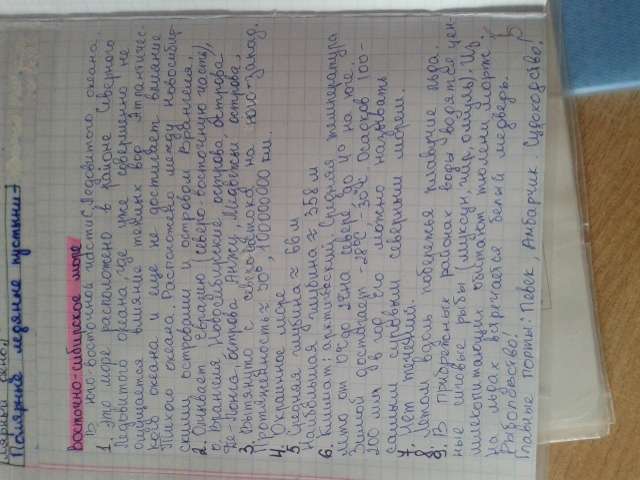 лярный день.
Полярные ледяные пустыни-
Восточно-сибирское море
В юго-восточной части С.Ледовитого океана.
1. Это море расположено в районе Северного
Ледовитого океана, где уже совершенно не
ощущается влияние теплых вод Атлантичес-
кого океана и еще не достигает влияние
Тихого океана. Расположено между Новосибир-
скими островами и островом Врангеля.
2. Омывает Евразию (северо-восточную часть),
о. Врангеля, Новосибирские острова, острова
Де-Лонга, острова Анжу, Медвежьи острова.
3. Вытянуто с северо-востока на юго-запад.
Протяженность ≈ 30°, 100000000 км.
4. Окраинное море
5. Средняя глубина ≈ 66 м
Наибольшая глубина ≈ 358 м
6. Климат: арктический. Средняя температура
лето от 0° до на севере, до 4° на юге.
Зимой достигает -28°C, -30°C. Осадков 100-
200 мм в год, его можно называть
самым суровым северным морем.
7. Нет течений.
8. Летом вдоль побережья плавучие льда.
9. В прибрежных районах воды водятся цен-
ные сиговые рыбы (муксун, чир, омуль). Из
млекопитающих обитают тюлени, морж.
На льдах встречается белый медведь.
Рыболовство!
Главные порты: Певек, Амбарчик. Судоходство!